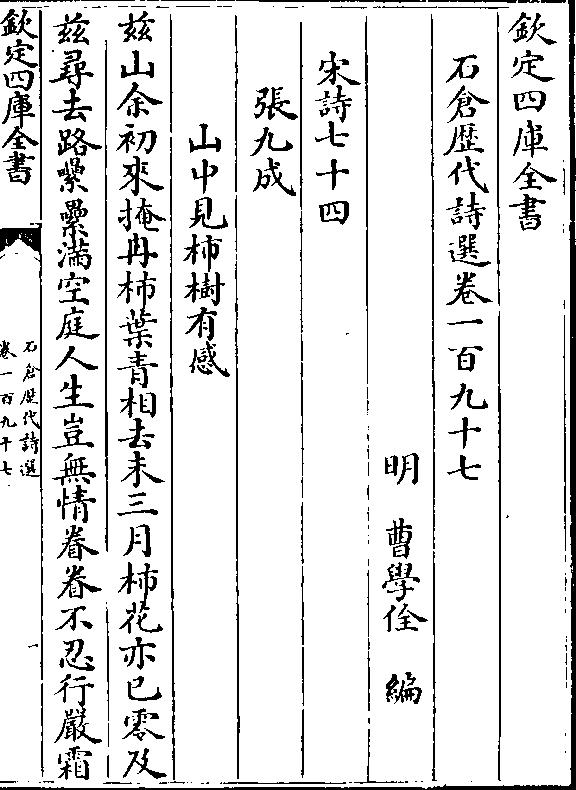 欽定四庫全書
石倉歴代詩選卷一百九十七
明　曹學佺　編
宋詩七十四
張九成
山中見柿樹有感
兹山余初來掩冉柿葉青相去未三月柿花亦已零及
兹尋去路纍纍滿空庭人生豈無情眷眷不忍行嚴霜
欽定四庫全書
石倉歴代詩選
卷一百九十七
一